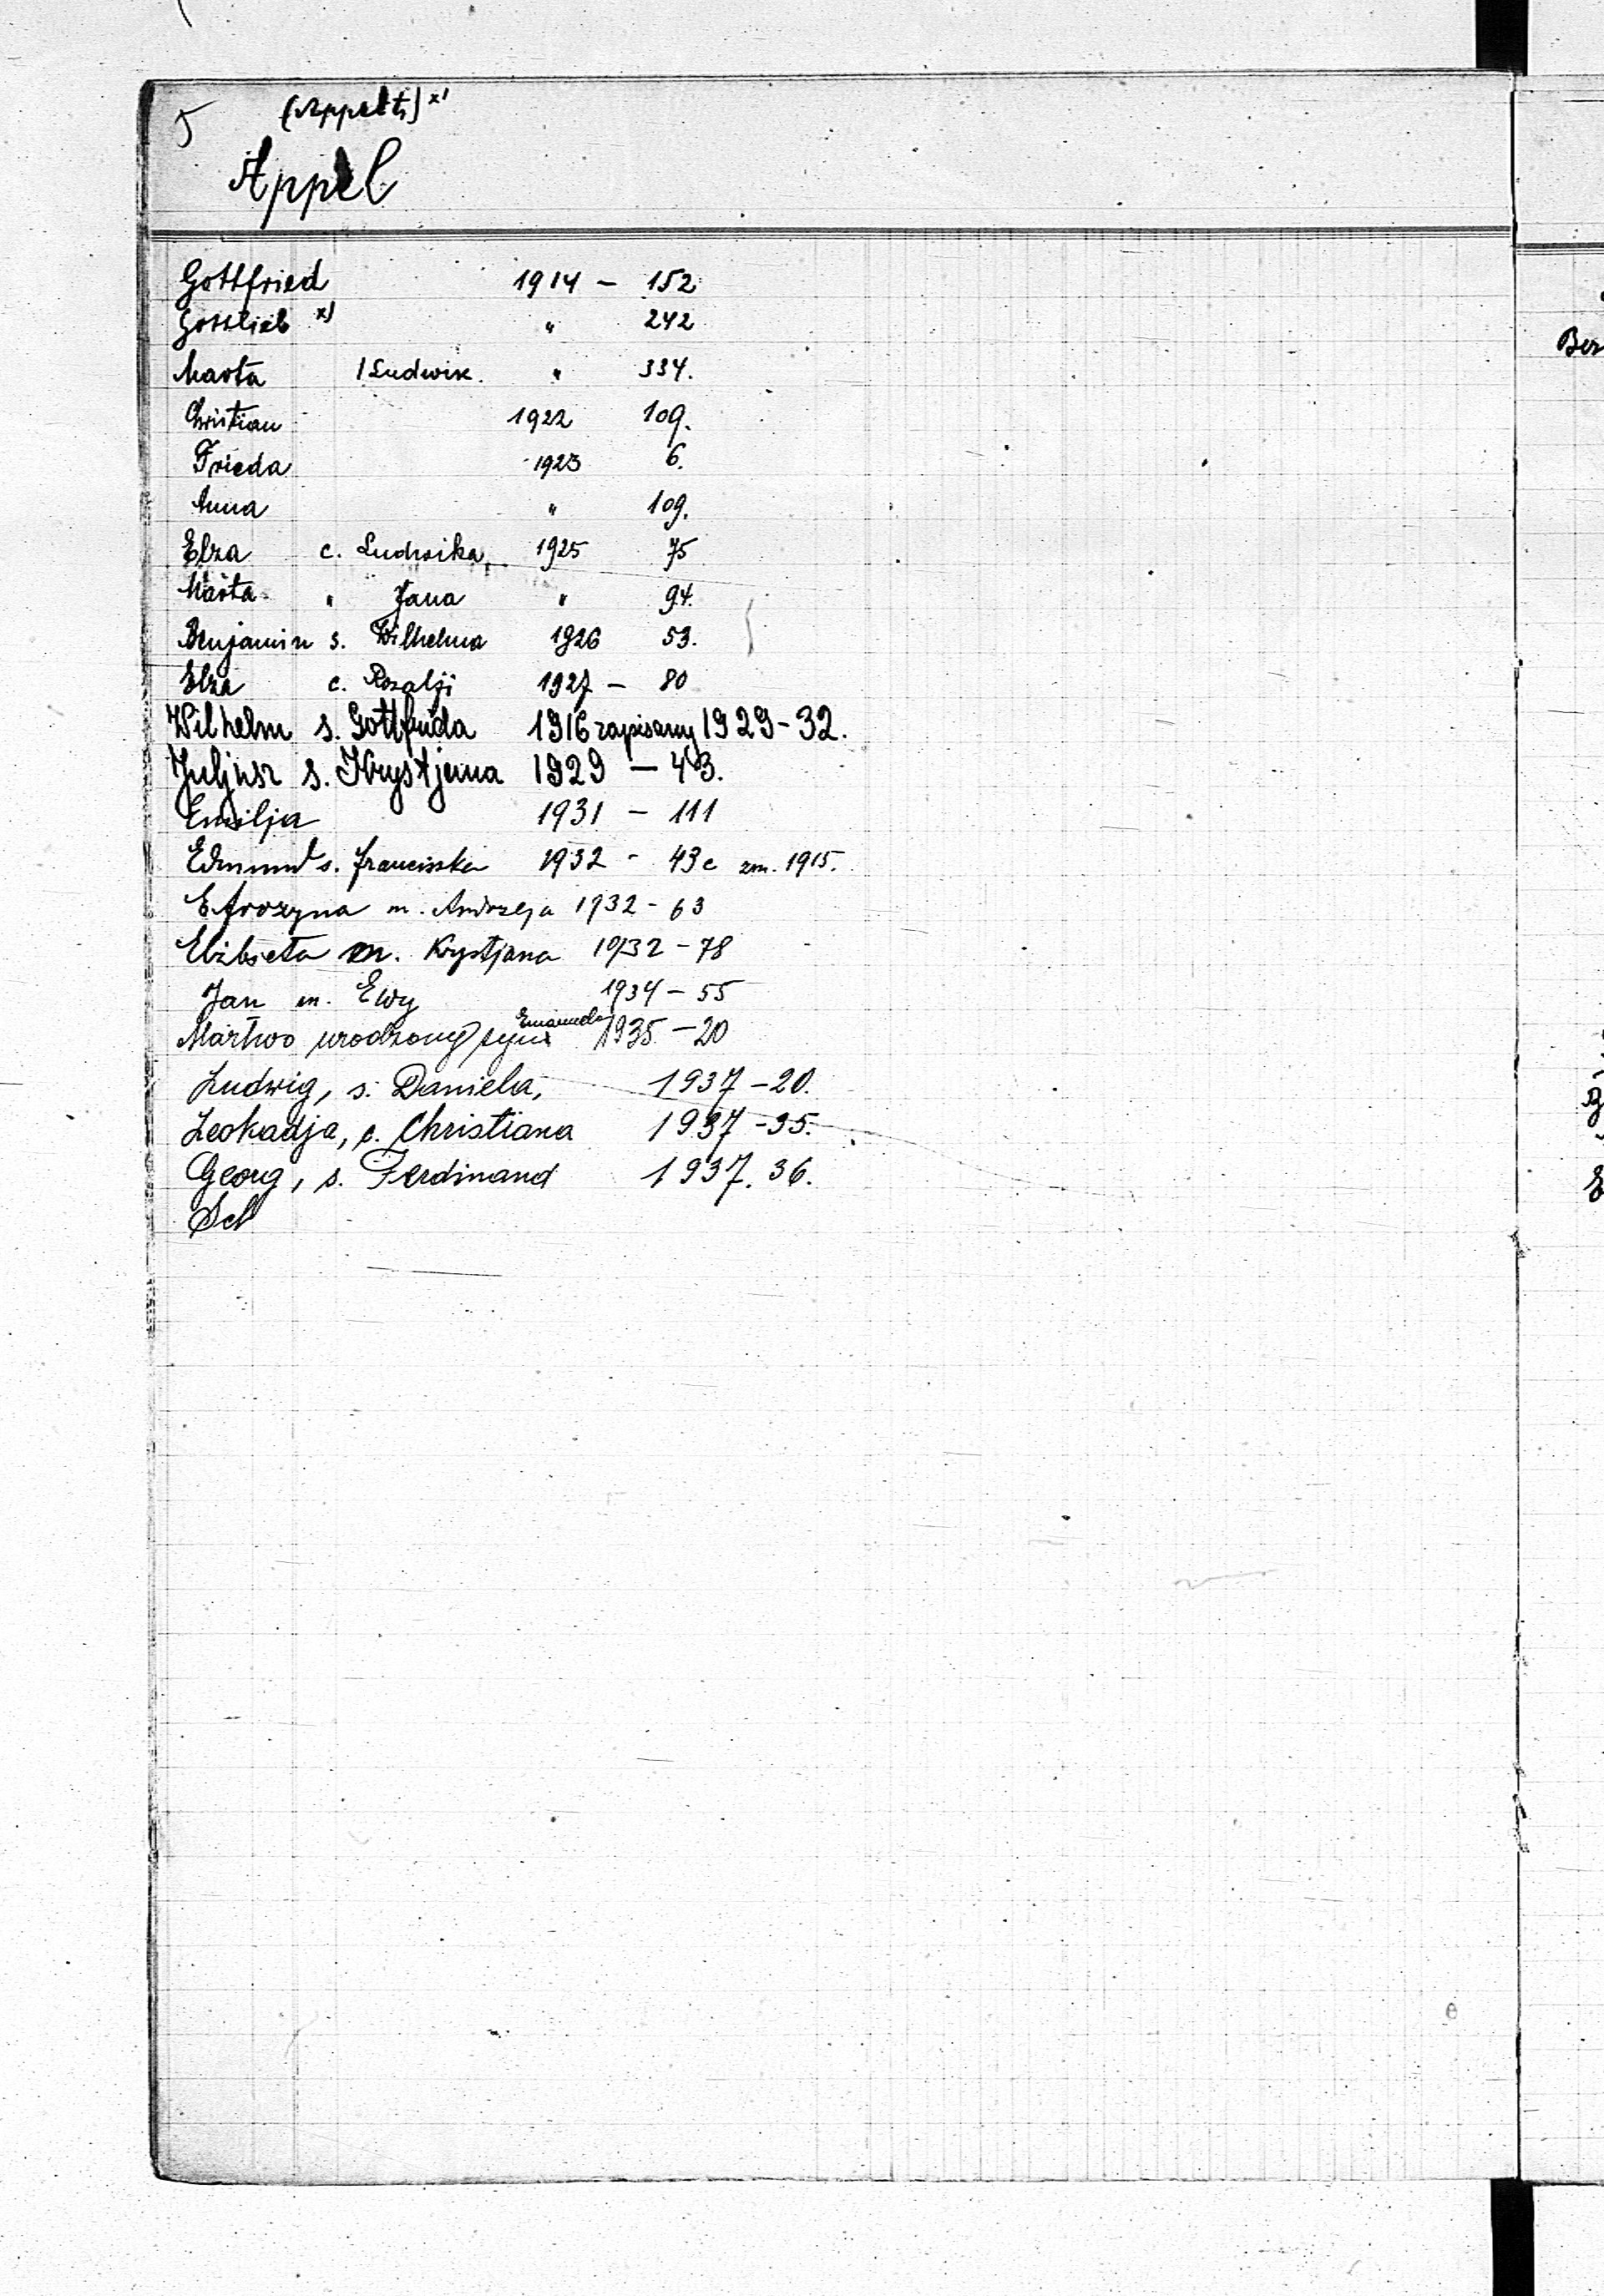 5 (Appelt) x)
Appel
Gottfried 1914 - 152
Gottlieb x) " 242
Marta / Ludwik. " 334.
Christian 1922 109.
Frieda 1923 6.
Anna " 109.
Elza c. Ludwika, 1925 75
Marta " Jana " 94.
Benjamin s. Wilhelma 1926 53.
Elza c. Rozalji 1927 - 80
Wilhelm s. Gottfrida 1916 zapisany 1929 - 32.
Juljusz s. Krystjana 1929 - 43.
Emilja 1931 - 111
Edmund s. Franciszka 1932 - 43c zm. 1915.
Efrozyna m. Andrzeja 1932 - 63
Elżbieta m. Krystjana 1932 - 78
Jan m. Ewy 1934 - 55
Martwo urodzony syn Emanuela 1935 - 20
Ludwig, s. Daniela, 1937 - 20.
Leokadja, c. Christiana 1937 - 35.
Georg, s. Ferdinand 1937. 36.
Sch
Ber